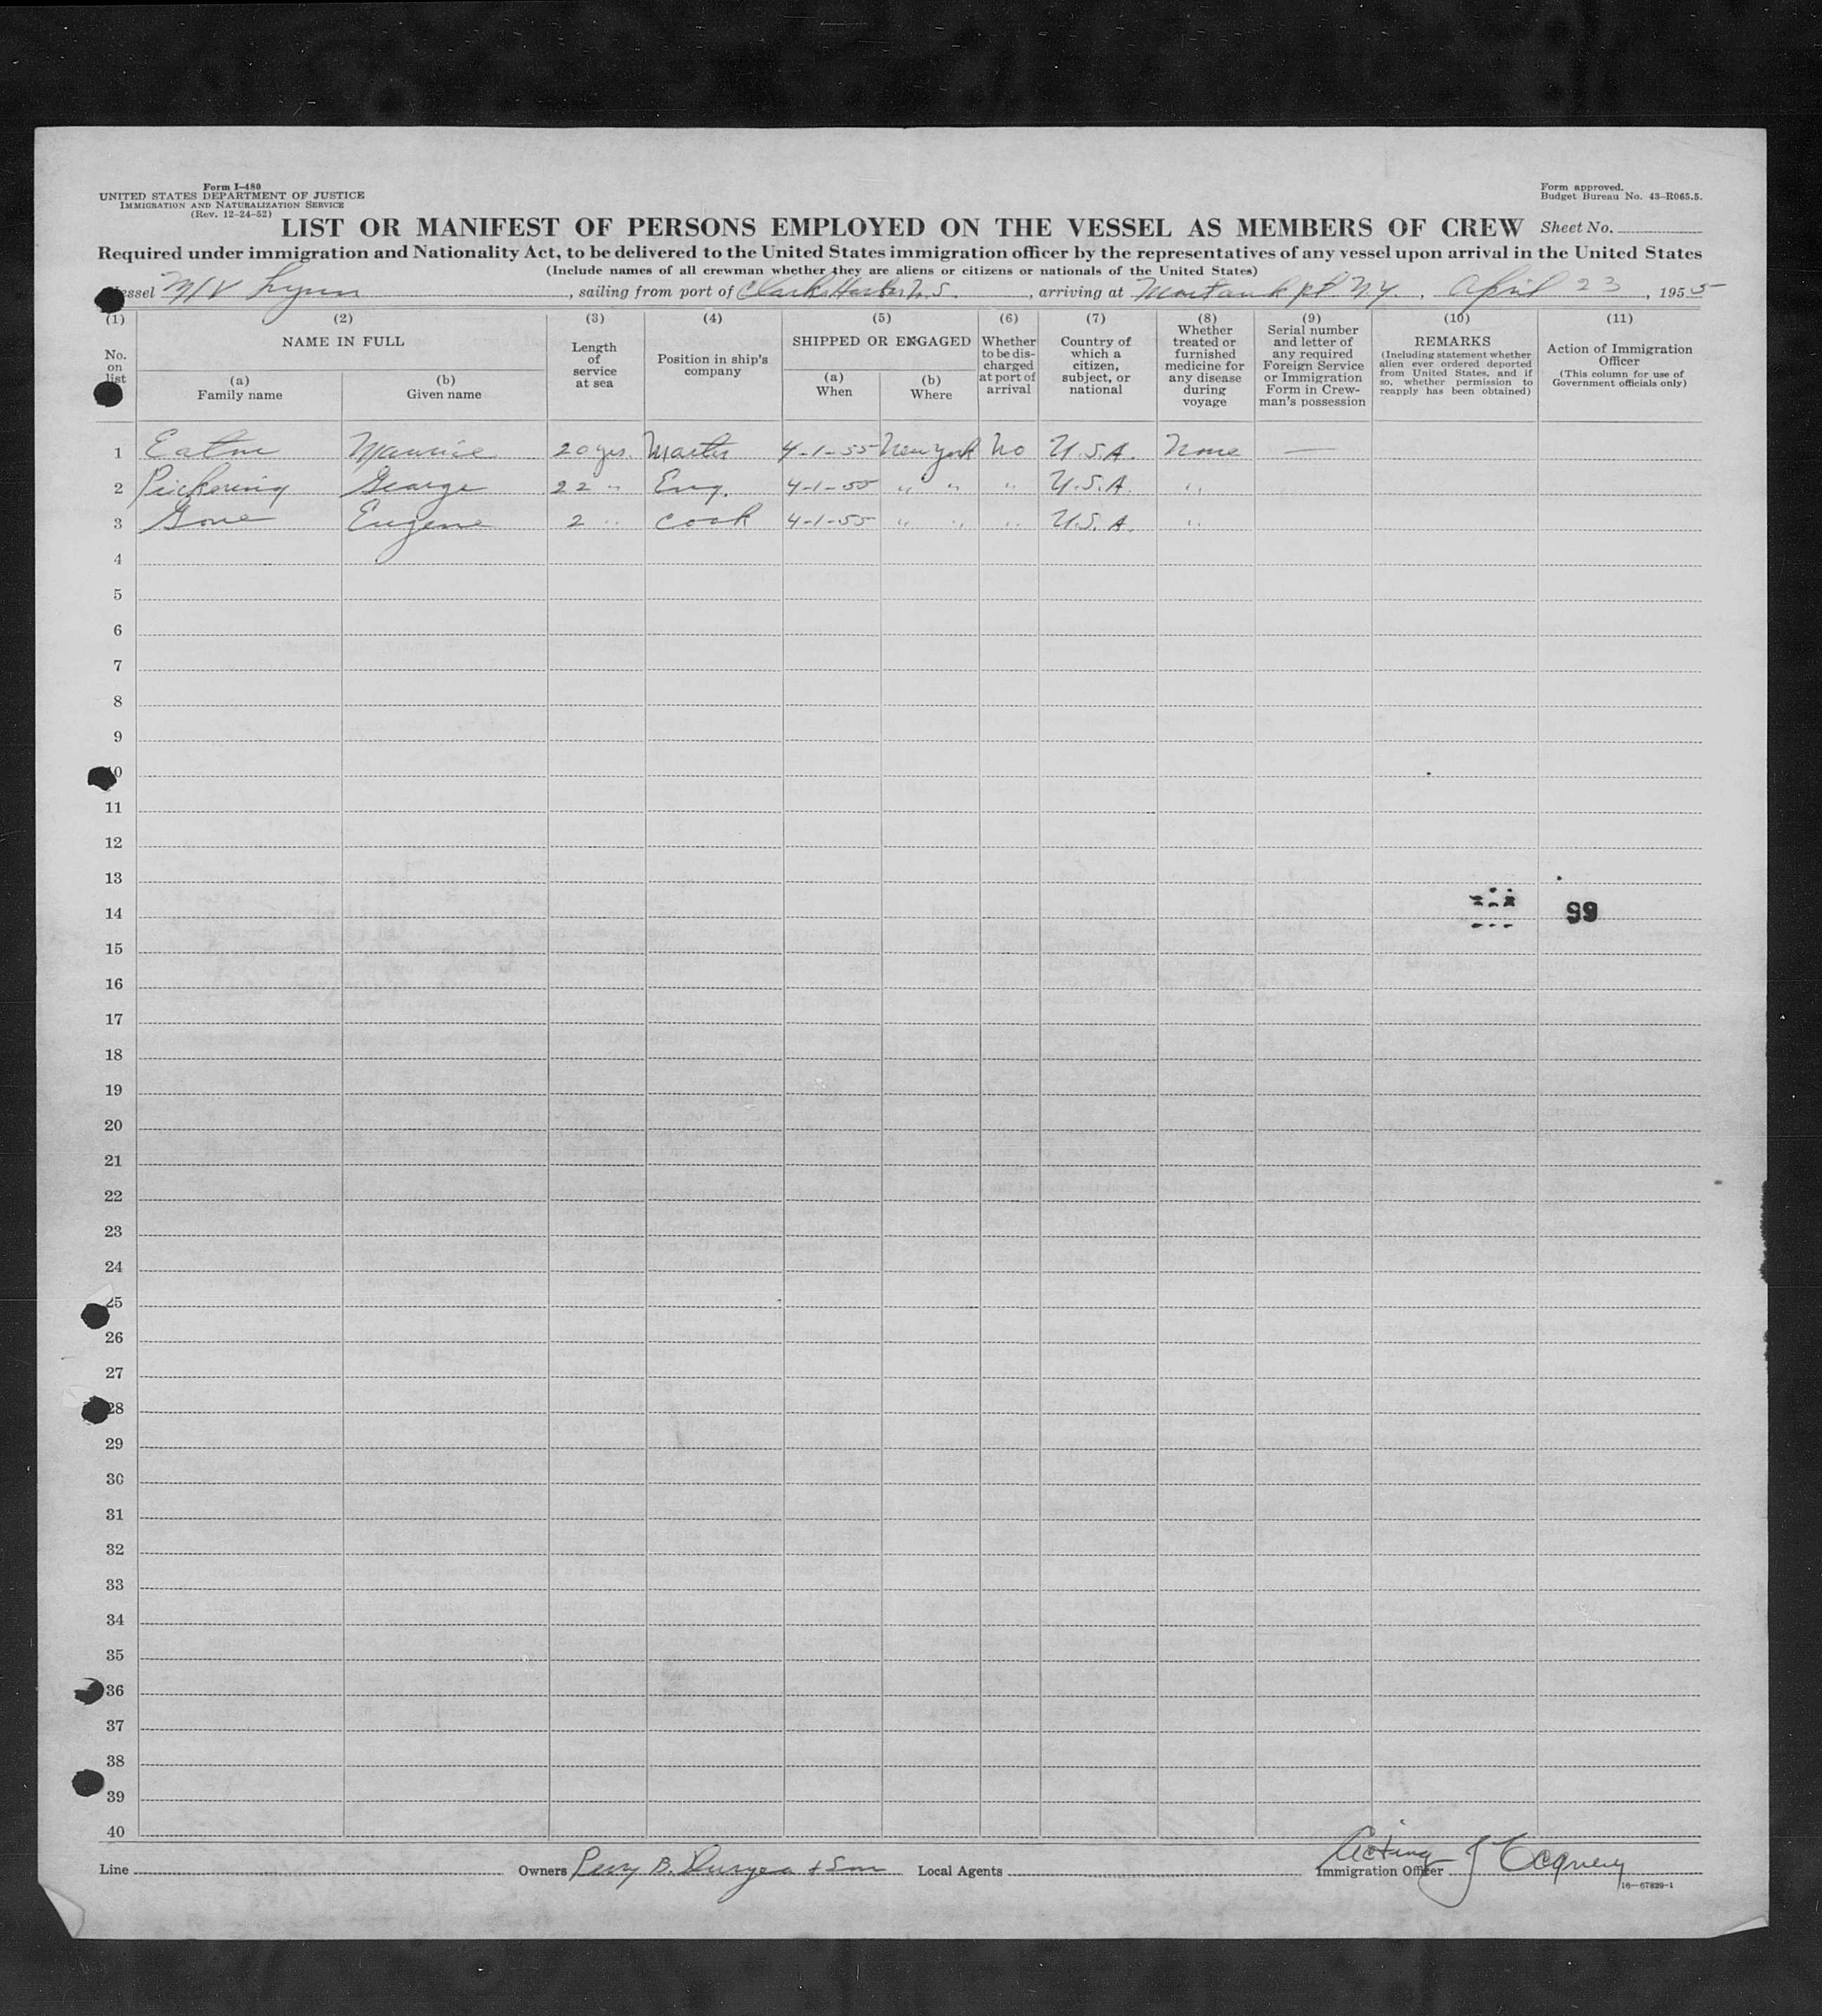 Form I-480
UNITED STATES DEPARTMENT OF JUSTICE
IMMIGRATION AND NATURALIZATION SERVICE
(Rev. 12-24-52)
Form approved.
Budget Bureau No. 43-R065.5.
LIST OR MANIFEST OF PERSONS EMPLOYED ON THE VESSEL AS MEMBERS OF CREW Sheet No.
Required under immigration and Nationality Act, to be delivered to the United States immigration officer by the representatives of any vessel upon arrival in the United States
(Include names of all crewman whether they are aliens or citizens or nationals of the United States)
Vessel M/V Lynn, sailing from port of Clarks Harbor N.S., arriving at Montauk pt. N.Y., April 23, 1955
(1) (2) (3) (4) (5) (6) (7) (8) (9) (10) (11)
No. on list
NAME IN FULL
(a) Family name
(b) Given name
Length of service at sea
Position in ship's company
SHIPPED OR ENGAGED
(a) When
(b) Where
Whether to be discharged at port of arrival
Country of which a citizen, subject, or national
Whether treated or furnished medicine for any disease during voyage
Serial number and letter of any required Foreign Service or Immigration Form in Crewman's possession
REMARKS
(Including statement whether alien ever ordered deported from United States, and if so, whether permission to reapply has been obtained)
Action of Immigration Officer
(This column for use of Government officials only)
1 Eaton Maurice 20 yrs. Master 4-1-55 New York No U.S.A. None —
2 Pickering George 22 " Eng. 4-1-55 " " " U.S.A. "
3 Gove Eugene 2 " Cook 4-1-55 " " " U.S.A. "
4
5
6
7
8
9
10
11
12
13
14 99
15
16
17
18
19
20
21
22
23
24
25
26
27
28
29
30
31
32
33
34
35
36
37
38
39
40
Line Owners Perry B. Duryea & Son Local Agents Acting Immigration Officer
16-67829-1